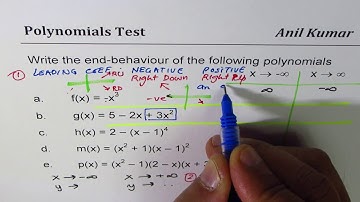 Polynomials Test
Anil Kumar
Write the end-behaviour of the following polynomials
① LEADING COEF NEGATIVE POSITIVE
Right Down Right Up
x → -∞ x → ∞
RD
an
∞ -∞
a. f(x) = -x³ -ve
b. g(x) = 5 - 2x + 3x²
c. h(x) = 2 - (x - 1)⁴
d. m(x) = (x² + 1)(x - 1)²
e. p(x) = (x² - 1)(2 - x)(x + 3
x → -∞ x → +∞ ②
y → y → ..